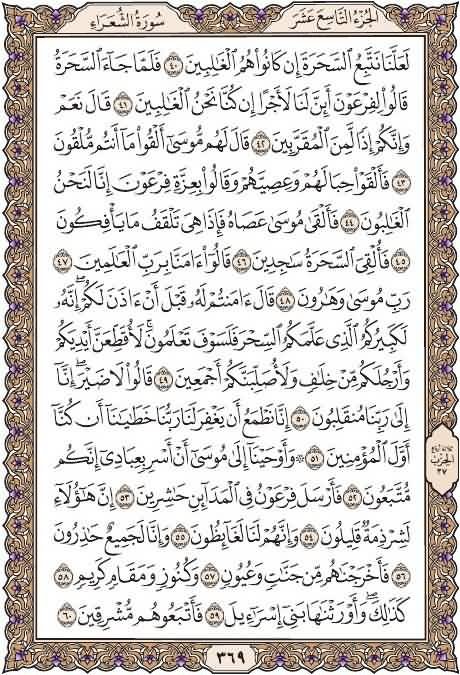 الجزء التاسع عشر
سورة الشعراء
لَعَلَّنَا نَتَّبِعُ ٱلسَّحَرَةَ إِن كَانُوا۟ هُمُ ٱلْغَـٰلِبِينَ ٤٠ فَلَمَّا جَآءَ ٱلسَّحَرَةُ
قَالُوا۟ لِفِرْعَوْنَ أَئِنَّ لَنَا لَأَجْرًا إِن كُنَّا نَحْنُ ٱلْغَـٰلِبِينَ ٤١ قَالَ نَعَمْ
وَإِنَّكُمْ إِذًا لَّمِنَ ٱلْمُقَرَّبِينَ ٤٢ قَالَ لَهُم مُّوسَىٰٓ أَلْقُوا۟ مَآ أَنتُم مُّلْقُونَ
٤٣ فَأَلْقَوْا۟ حِبَالَهُمْ وَعِصِيَّهُمْ وَقَالُوا۟ بِعِزَّةِ فِرْعَوْنَ إِنَّا لَنَحْنُ
ٱلْغَـٰلِبُونَ ٤٤ فَأَلْقَىٰ مُوسَىٰ عَصَاهُ فَإِذَا هِىَ تَلْقَفُ مَا يَأْفِكُونَ
٤٥ فَأُلْقِىَ ٱلسَّحَرَةُ سَـٰجِدِينَ ٤٦ قَالُوٓا۟ ءَامَنَّا بِرَبِّ ٱلْعَـٰلَمِينَ ٤٧
رَبِّ مُوسَىٰ وَهَـٰرُونَ ٤٨ قَالَ ءَامَنتُمْ لَهُۥ قَبْلَ أَنْ ءَاذَنَ لَكُمْ ۖ إِنَّهُۥ
لَكَبِيرُكُمُ ٱلَّذِى عَلَّمَكُمُ ٱلسِّحْرَ فَلَسَوْفَ تَعْلَمُونَ ۚ لَأُقَطِّعَنَّ أَيْدِيَكُمْ
وَأَرْجُلَكُم مِّنْ خِلَـٰفٍ وَلَأُصَلِّبَنَّكُمْ أَجْمَعِينَ ٤٩ قَالُوا۟ لَا ضَيْرَ ۖ إِنَّآ
إِلَىٰ رَبِّنَا مُنقَلِبُونَ ٥٠ إِنَّا نَطْمَعُ أَن يَغْفِرَ لَنَا رَبُّنَا خَطَـٰيَـٰنَآ أَن كُنَّآ
أَوَّلَ ٱلْمُؤْمِنِينَ ٥١ ۞ وَأَوْحَيْنَآ إِلَىٰ مُوسَىٰٓ أَنْ أَسْرِ بِعِبَادِىٓ إِنَّكُم
مُّتَّبَعُونَ ٥٢ فَأَرْسَلَ فِرْعَوْنُ فِى ٱلْمَدَآئِنِ حَـٰشِرِينَ ٥٣ إِنَّ هَـٰٓؤُلَآءِ
لَشِرْذِمَةٌ قَلِيلُونَ ٥٤ وَإِنَّهُمْ لَنَا لَغَآئِظُونَ ٥٥ وَإِنَّا لَجَمِيعٌ حَـٰذِرُونَ
٥٦ فَأَخْرَجْنَـٰهُم مِّن جَنَّـٰتٍ وَعُيُونٍ ٥٧ وَكُنُوزٍ وَمَقَامٍ كَرِيمٍ ٥٨
كَذَٰلِكَ ۖ وَأَوْرَثْنَـٰهَا بَنِىٓ إِسْرَٰٓءِيلَ ٥٩ فَأَتْبَعُوهُم مُّشْرِقِينَ ٦٠
الحزب
٣٧
٣٦٩